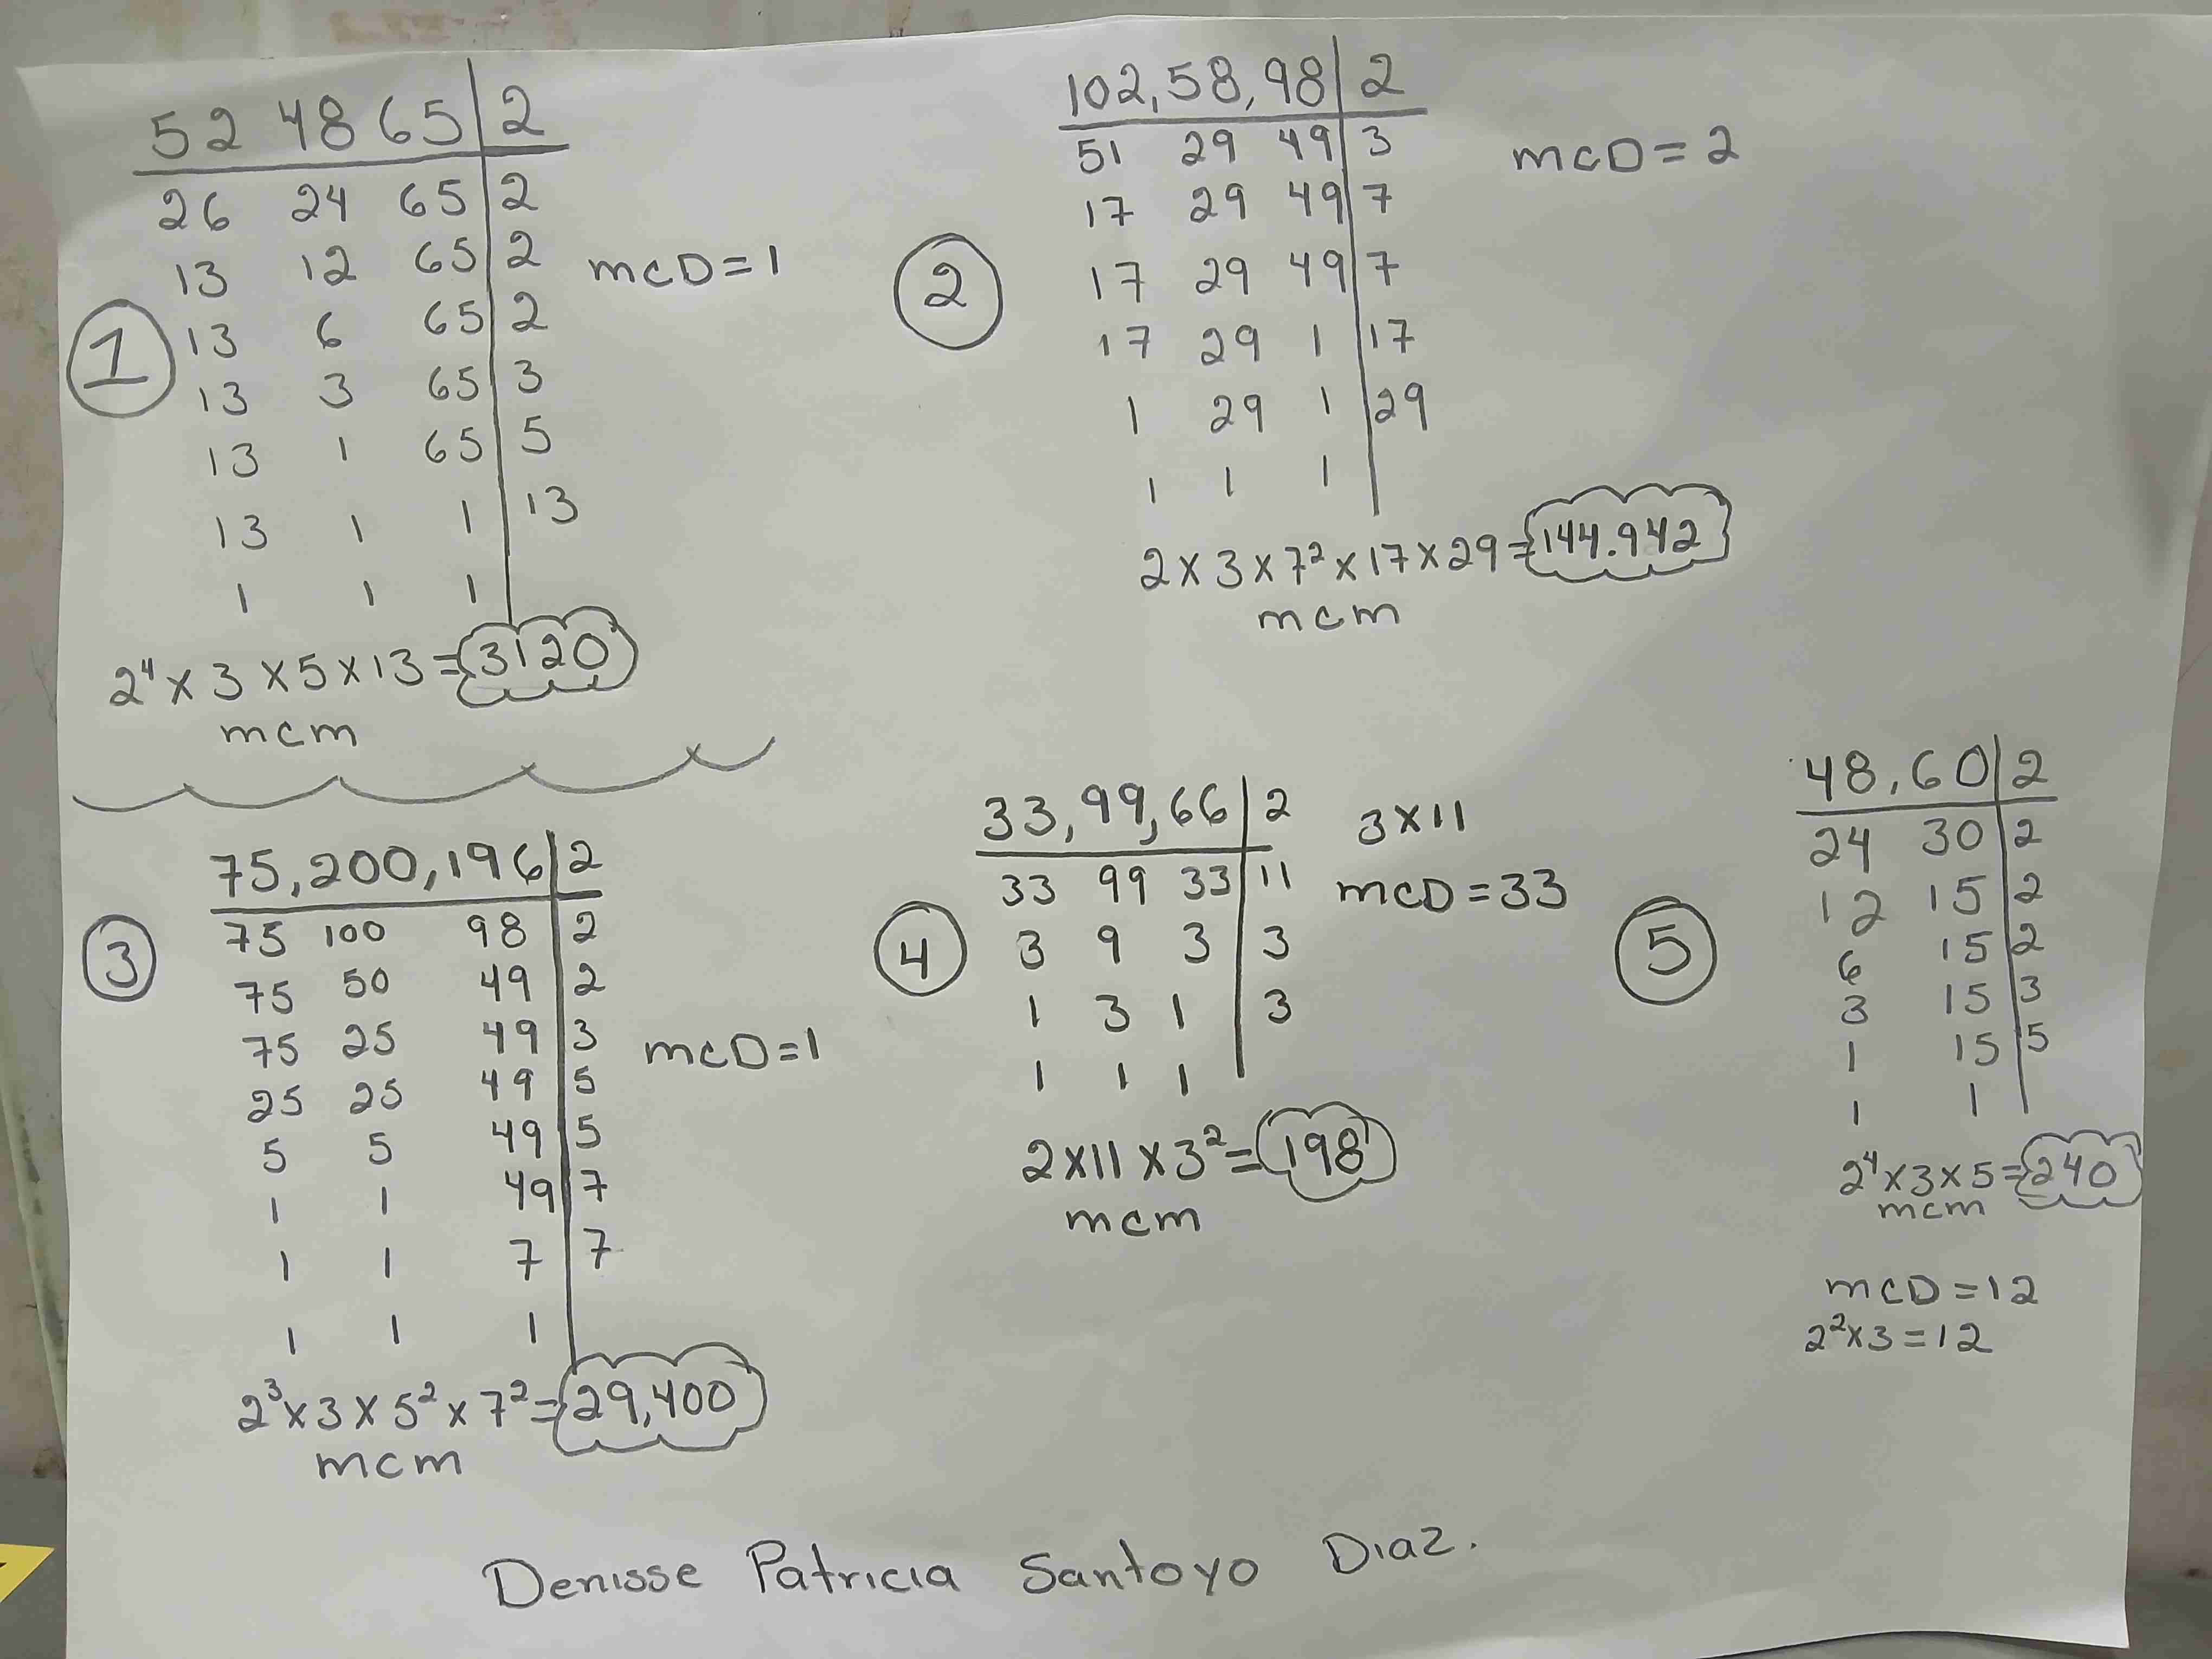 1
52 48 65 | 2
26 24 65 | 2
13 12 65 | 2
13 6 65 | 2
13 3 65 | 3
13 1 65 | 5
13 1 1 | 13
1 1 1
mcD=1
2⁴ x 3 x 5 x 13 = 3120
mcm
2
102, 58, 98 | 2
51 29 49 | 3
17 29 49 | 7
17 29 49 | 7
17 29 1 | 17
1 29 1 | 29
1 1 1
mcD = 2
2 x 3 x 7² x 17 x 29 = 144.942
mcm
3
75, 200, 196 | 2
75 100 98 | 2
75 50 49 | 2
75 25 49 | 3
25 25 49 | 5
5 5 49 | 5
1 1 49 | 7
1 1 7 | 7
1 1 1
mcD=1
2³ x 3 x 5² x 7² = 29,400
mcm
4
33, 99, 66 | 2
33 99 33 | 11
3 9 3 | 3
1 3 1 | 3
1 1 1
3x11
mcD = 33
2x11 x 3² = 198
mcm
5
48, 60 | 2
24 30 | 2
12 15 | 2
6 15 | 2
3 15 | 3
1 15 | 5
1 1
2⁴ x 3 x 5 = 240
mcm
mcD = 12
2² x 3 = 12
Denisse Patricia Santoyo Diaz.